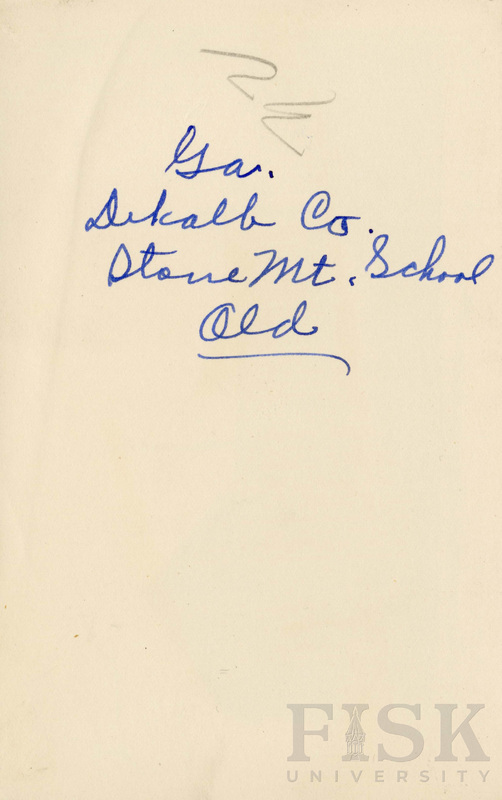 Ga.
Dekalb Co.
Stone Mt. School
Old
FISK
UNIVERSITY